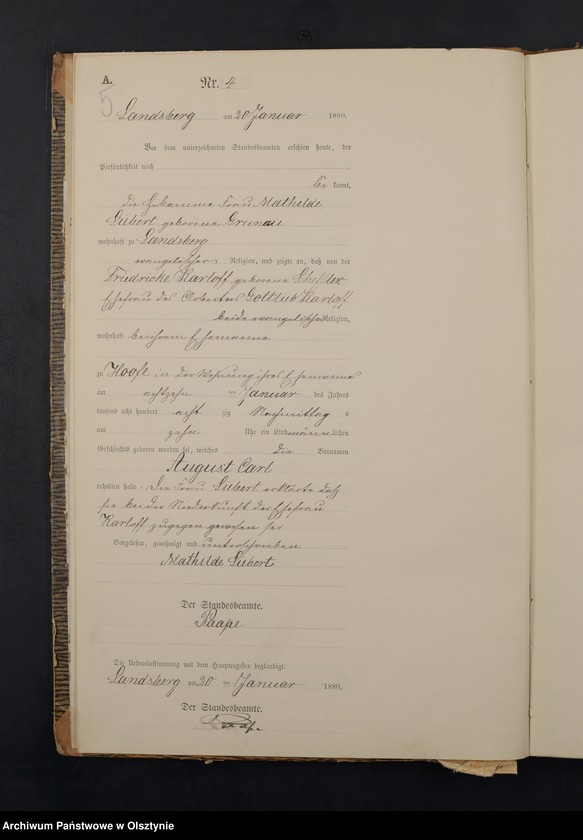 A.
Nr. 4
5
Landsberg am 20 Januar 1880.
Vor dem unterzeichneten Standesbeamten erschien heute, der
Persönlichkeit nach
be kannt,
die Hebamme Frau Mathilde
Siebert geborene Grunau
wohnhaft zu Landsberg
evangelischer Religion, und zeigte an, daß von der
Friedricke Karloff geborene
Ehefrau des Arbeiters Gottlieb Karloff
beide evangelischer Religion,
wohnhaft bei ihrem Ehemanne
zu Hoofe in der Wohnung ihres Ehemannes
am achtzehn ten Januar des Jahres
tausend acht hundert acht zig Nachmittag s
um zehn Uhr ein Kind männlichen
Geschlechts geboren worden sei, welches die Vornamen
August Carl
erhalten habe. Die Frau Siebert erklärte daß
sie bei der Niederkunft der Ehefrau
Karloff zugegen gewesen sei
Vorgelesen, genehmigt und unterschrieben
Mathilde Siebert
Der Standesbeamte.
Paape
Die Uebereinstimmung mit dem Hauptregister beglaubigt.
Landsberg am 20 ten Januar 1880.
Der Standesbeamte.
Paape
Archiwum Państwowe w Olsztynie